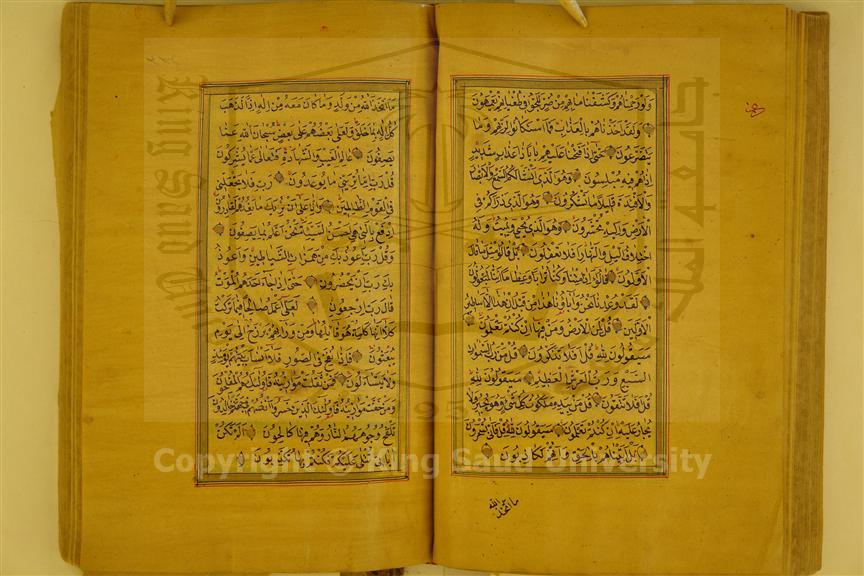 وَلَوْ رَحِمْنَاهُمْ وَكَشَفْنَا مَا بِهِمْ مِنْ ضُرٍّ لَلَجُّوا فِي طُغْيَانِهِمْ يَعْمَهُونَ
وَلَقَدْ اَخَذْنَاهُمْ بِالْعَذَابِ فَمَا اسْتَكَانُوا لِرَبِّهِمْ وَمَا
يَتَضَرَّعُونَ حَتَّى اِذَا فَتَحْنَا عَلَيْهِمْ بَابًا ذَا عَذَابٍ شَدِيدٍ
اِذَا هُمْ فِيهِ مُبْلِسُونَ وَهُوَ الَّذِي اَنْشَاَ لَكُمُ السَّمْعَ وَالْاَبْصَارَ
وَالْاَفْئِدَةَ قَلِيلًا مَا تَشْكُرُونَ وَهُوَ الَّذِي ذَرَاَكُمْ فِي
الْاَرْضِ وَاِلَيْهِ تُحْشَرُونَ وَهُوَ الَّذِي يُحْيِي وَيُمِيتُ وَلَهُ
اخْتِلَافُ الَّيْلِ وَالنَّهَارِ اَفَلَا تَعْقِلُونَ بَلْ قَالُوا مِثْلَ مَا قَالَ
الْاَوَّلُونَ قَالُوا ءَاِذَا مِتْنَا وَكُنَّا تُرَابًا وَعِظَامًا ءَاِنَّا لَمَبْعُوثُونَ
لَقَدْ وُعِدْنَا نَحْنُ وَاٰبَاؤُنَا هٰذَا مِنْ قَبْلُ اِنْ هٰذَا اِلَّا اَسَاطِيرُ
الْاَوَّلِينَ قُلْ لِمَنِ الْاَرْضُ وَمَنْ فِيهَا اِنْ كُنْتُمْ تَعْلَمُونَ
سَيَقُولُونَ لِلّٰهِ قُلْ اَفَلَا تَذَكَّرُونَ قُلْ مَنْ رَبُّ السَّمٰوَاتِ
السَّبْعِ وَرَبُّ الْعَرْشِ الْعَظِيمِ سَيَقُولُونَ لِلّٰهِ
قُلْ اَفَلَا تَتَّقُونَ قُلْ مَنْ بِيَدِهِ مَلَكُوتُ كُلِّ شَيْءٍ وَهُوَ يُجِيرُ وَلَا
يُجَارُ عَلَيْهِ اِنْ كُنْتُمْ تَعْلَمُونَ سَيَقُولُونَ لِلّٰهِ قُلْ فَاَنّٰى تُسْحَرُونَ
بَلْ اَتَيْنَاهُمْ بِالْحَقِّ وَاِنَّهُمْ لَكَاذِبُونَ
ما اتخذ الله
مَا اتَّخَذَ اللّٰهُ مِنْ وَلَدٍ وَمَا كَانَ مَعَهُ مِنْ اِلٰهٍ اِذًا لَذَهَبَ
كُلُّ اِلٰهٍ بِمَا خَلَقَ وَلَعَلَا بَعْضُهُمْ عَلٰى بَعْضٍ سُبْحَانَ اللّٰهِ عَمَّا
يَصِفُونَ عَالِمِ الْغَيْبِ وَالشَّهَادَةِ فَتَعَالٰى عَمَّا يُشْرِكُونَ
قُلْ رَبِّ اِمَّا تُرِيَنِّي مَا يُوعَدُونَ رَبِّ فَلَا تَجْعَلْنِي
فِي الْقَوْمِ الظَّالِمِينَ وَاِنَّا عَلٰى اَنْ نُرِيَكَ مَا نَعِدُهُمْ لَقَادِرُونَ
اِدْفَعْ بِالَّتِي هِيَ اَحْسَنُ السَّيِّئَةَ نَحْنُ اَعْلَمُ بِمَا يَصِفُونَ
وَقُلْ رَبِّ اَعُوذُ بِكَ مِنْ هَمَزَاتِ الشَّيَاطِينِ وَاَعُوذُ
بِكَ رَبِّ اَنْ يَحْضُرُونِ حَتّٰى اِذَا جَاءَ اَحَدَهُمُ الْمَوْتُ
قَالَ رَبِّ ارْجِعُونِ لَعَلِّي اَعْمَلُ صَالِحًا فِيمَا تَرَكْتُ
كَلَّا اِنَّهَا كَلِمَةٌ هُوَ قَائِلُهَا وَمِنْ وَرَائِهِمْ بَرْزَخٌ اِلٰى يَوْمِ
يُبْعَثُونَ فَاِذَا نُفِخَ فِي الصُّورِ فَلَا اَنْسَابَ بَيْنَهُمْ يَوْمَئِذٍ
وَلَا يَتَسَاءَلُونَ فَمَنْ ثَقُلَتْ مَوَازِينُهُ فَاُولٰئِكَ هُمُ الْمُفْلِحُونَ
وَمَنْ خَفَّتْ مَوَازِينُهُ فَاُولٰئِكَ الَّذِينَ خَسِرُوا اَنْفُسَهُمْ فِي جَهَنَّمَ خَالِدُونَ
تَلْفَحُ وُجُوهَهُمُ النَّارُ وَهُمْ فِيهَا كَالِحُونَ اَلَمْ تَكُنْ
اٰيَاتِي تُتْلٰى عَلَيْكُمْ فَكُنْتُمْ بِهَا تُكَذِّبُونَ
Copyright © King Saud University